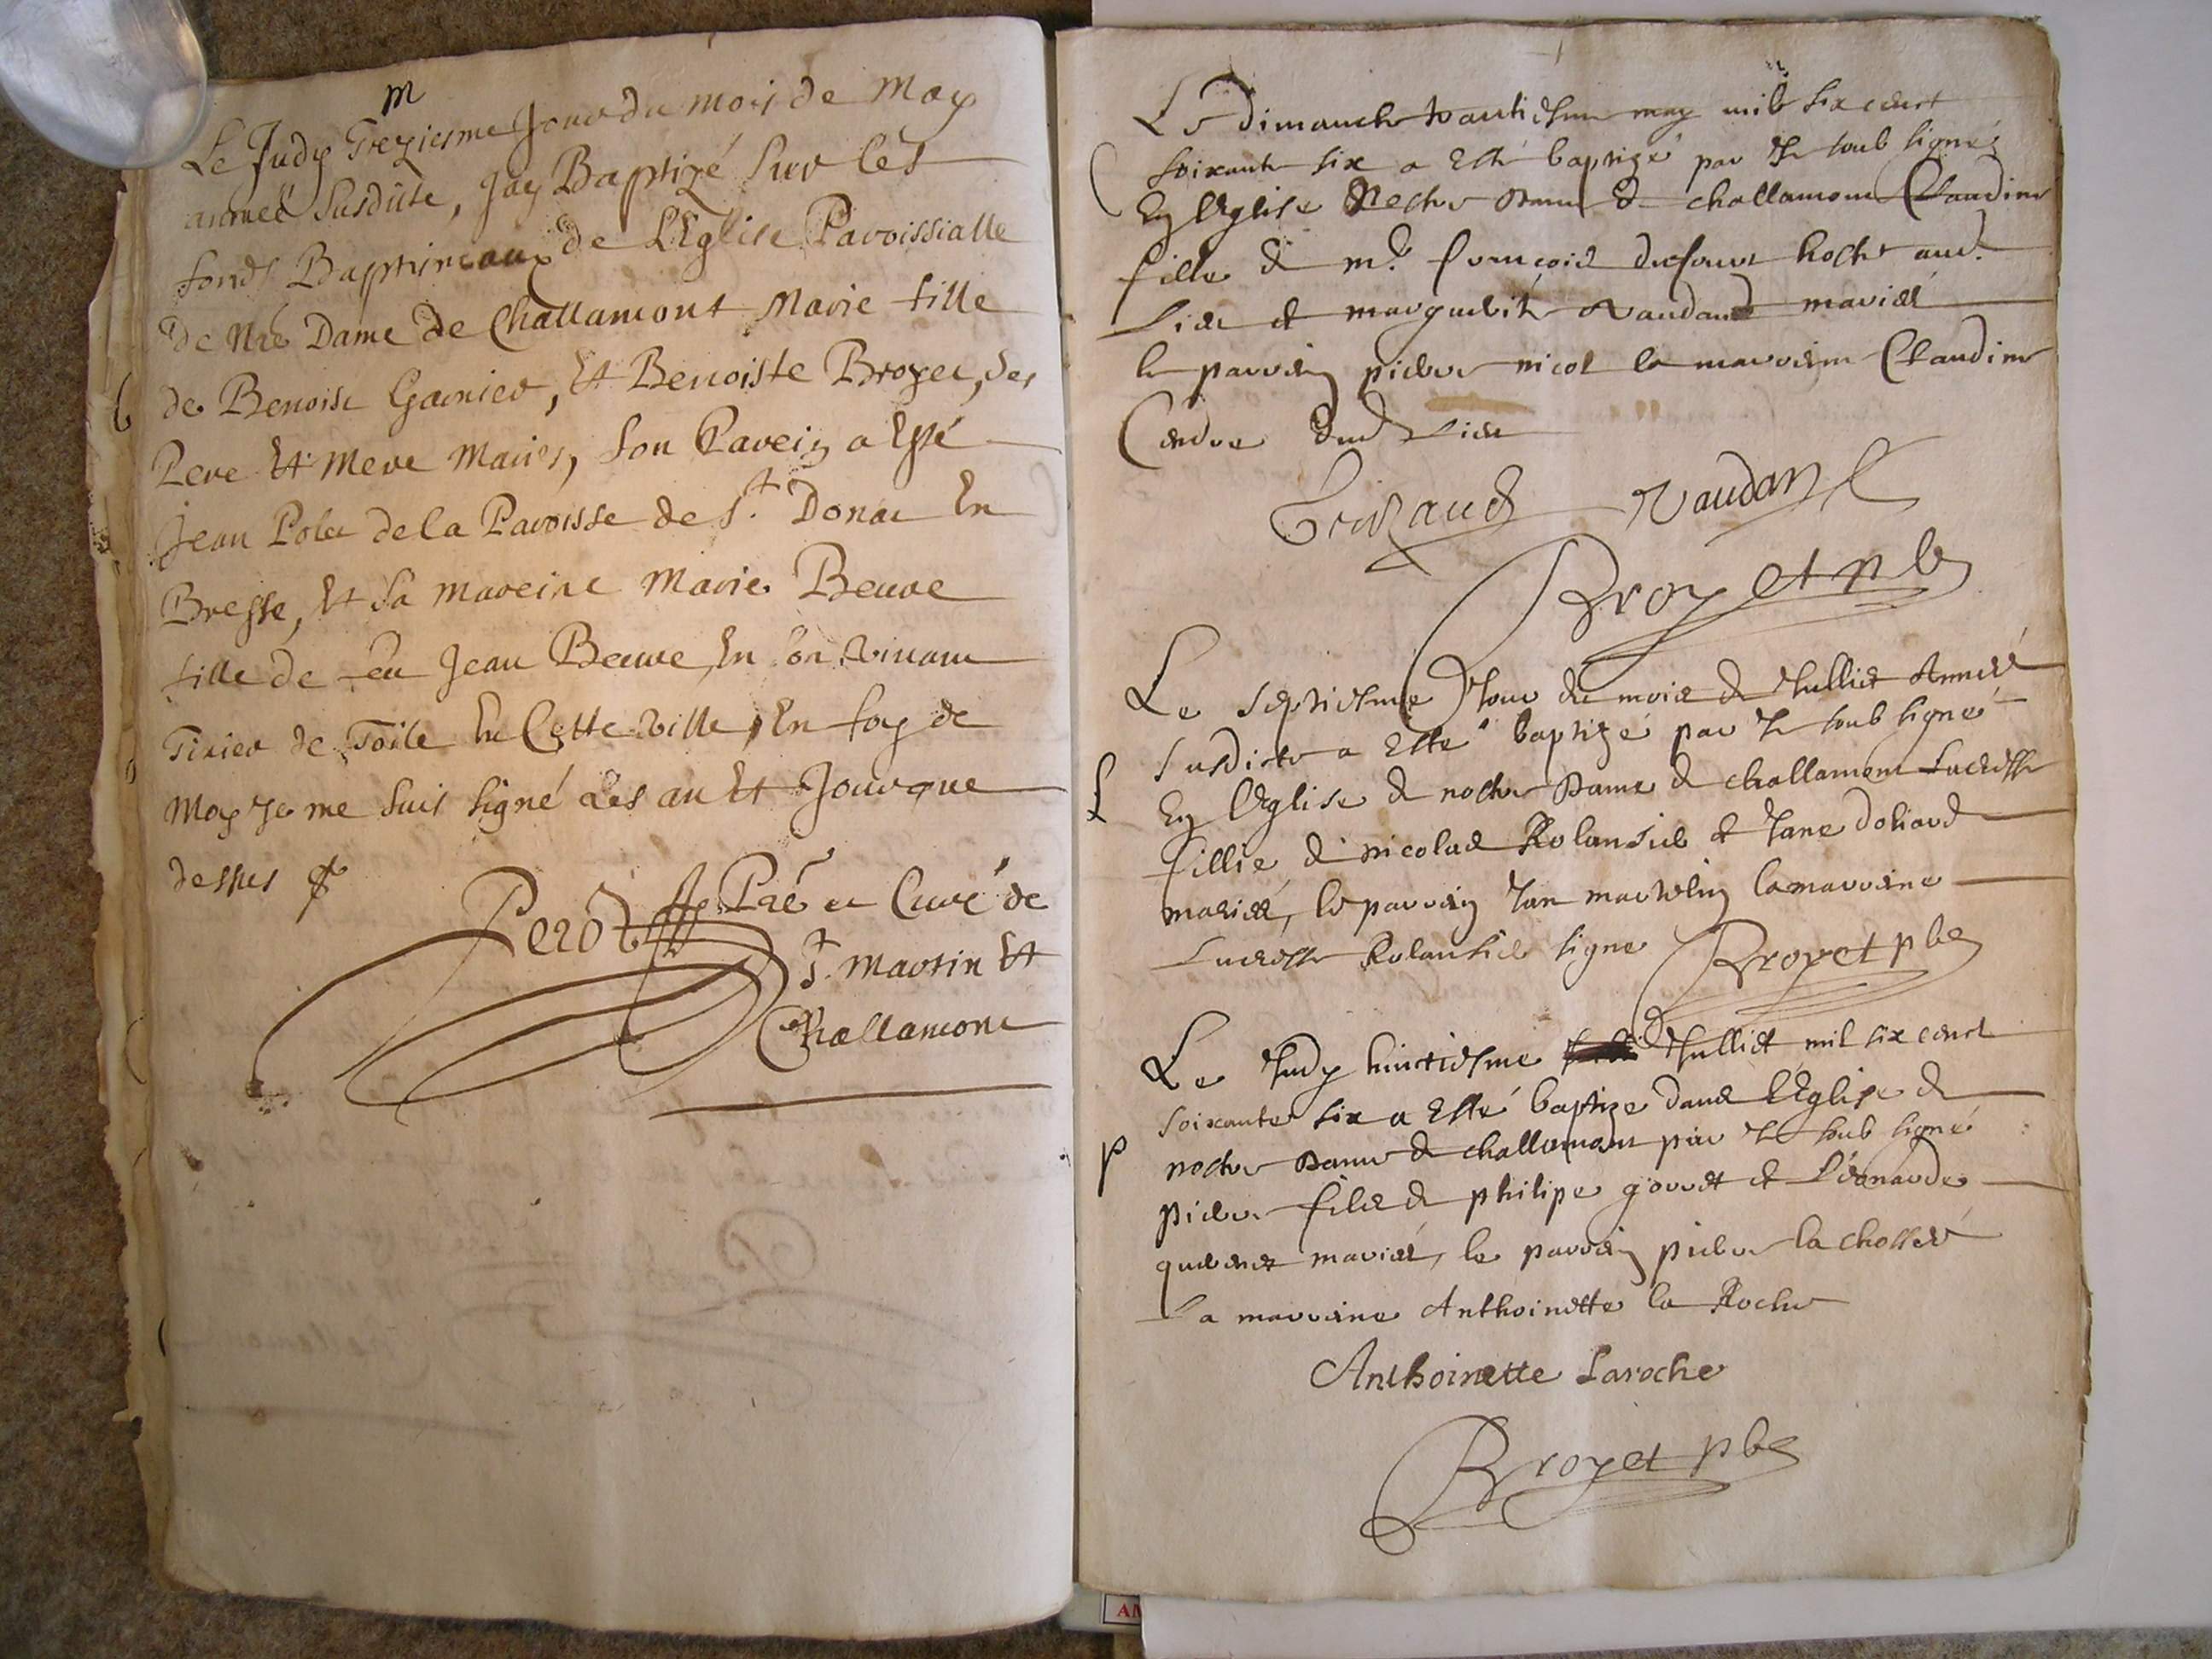 m
Le Judy Treziesme Jour du mois de May
année Susdiite, Jay Baptizé Sur les
fonds Baptimeaux de L'Eglise Paroissialle
De Nre Dame de Challamont Marie fille
b de Benoist Garnier, Et Benoiste Broyer, ses
Pere Et Mere Mariés, Son Parein a Esté
Jean Polet de la Paroisse de St. Donat En
Bresse, Et Sa mareine Marie Beuve
fille de feu Jean Beuve En son vivant
Tixier de Toile En Cette ville, En foy de
Moy Je me Suis Signé Les an Et Jour que
dessus
Perot Pré et Curé de
St. Martin Et
Challamont
Le dimanche may mil six cenct
soixante six a esté baptizé par Je soub signéz
En l'Eglise Nostre Dame de challamont Claudine
fille de mr. françois dufour hoste aud.
Lieu et marguerite Vaudand mariés
le parrein pierre nicol la marreine Claudine
Cendre dud Lieu
Vaudan
Broyet pbr
Le septiesme Jour du mois de Julliet Année
susdicte a Esté baptizé par Je soub signé
L En l'Eglise de nostre Dame de challamont Lucresse
fillie de nicolas Rolansie et Jane
mariés, le parrein Jan martelin la marreine
Lucresse Rolansie signe Broyet pbr
Le Judy huictiesme Julliet mil six cenct
soixante six a Esté baptize dans l'Eglise de
P nostre Dame de challamont par Je soub signé
pierre fils de philipe gouret et Léonarde
mariés, le parrein pierre la chossee
La marreine Anthoinette la Roche
Anthoinette Laroche
Broyet pbr
AM